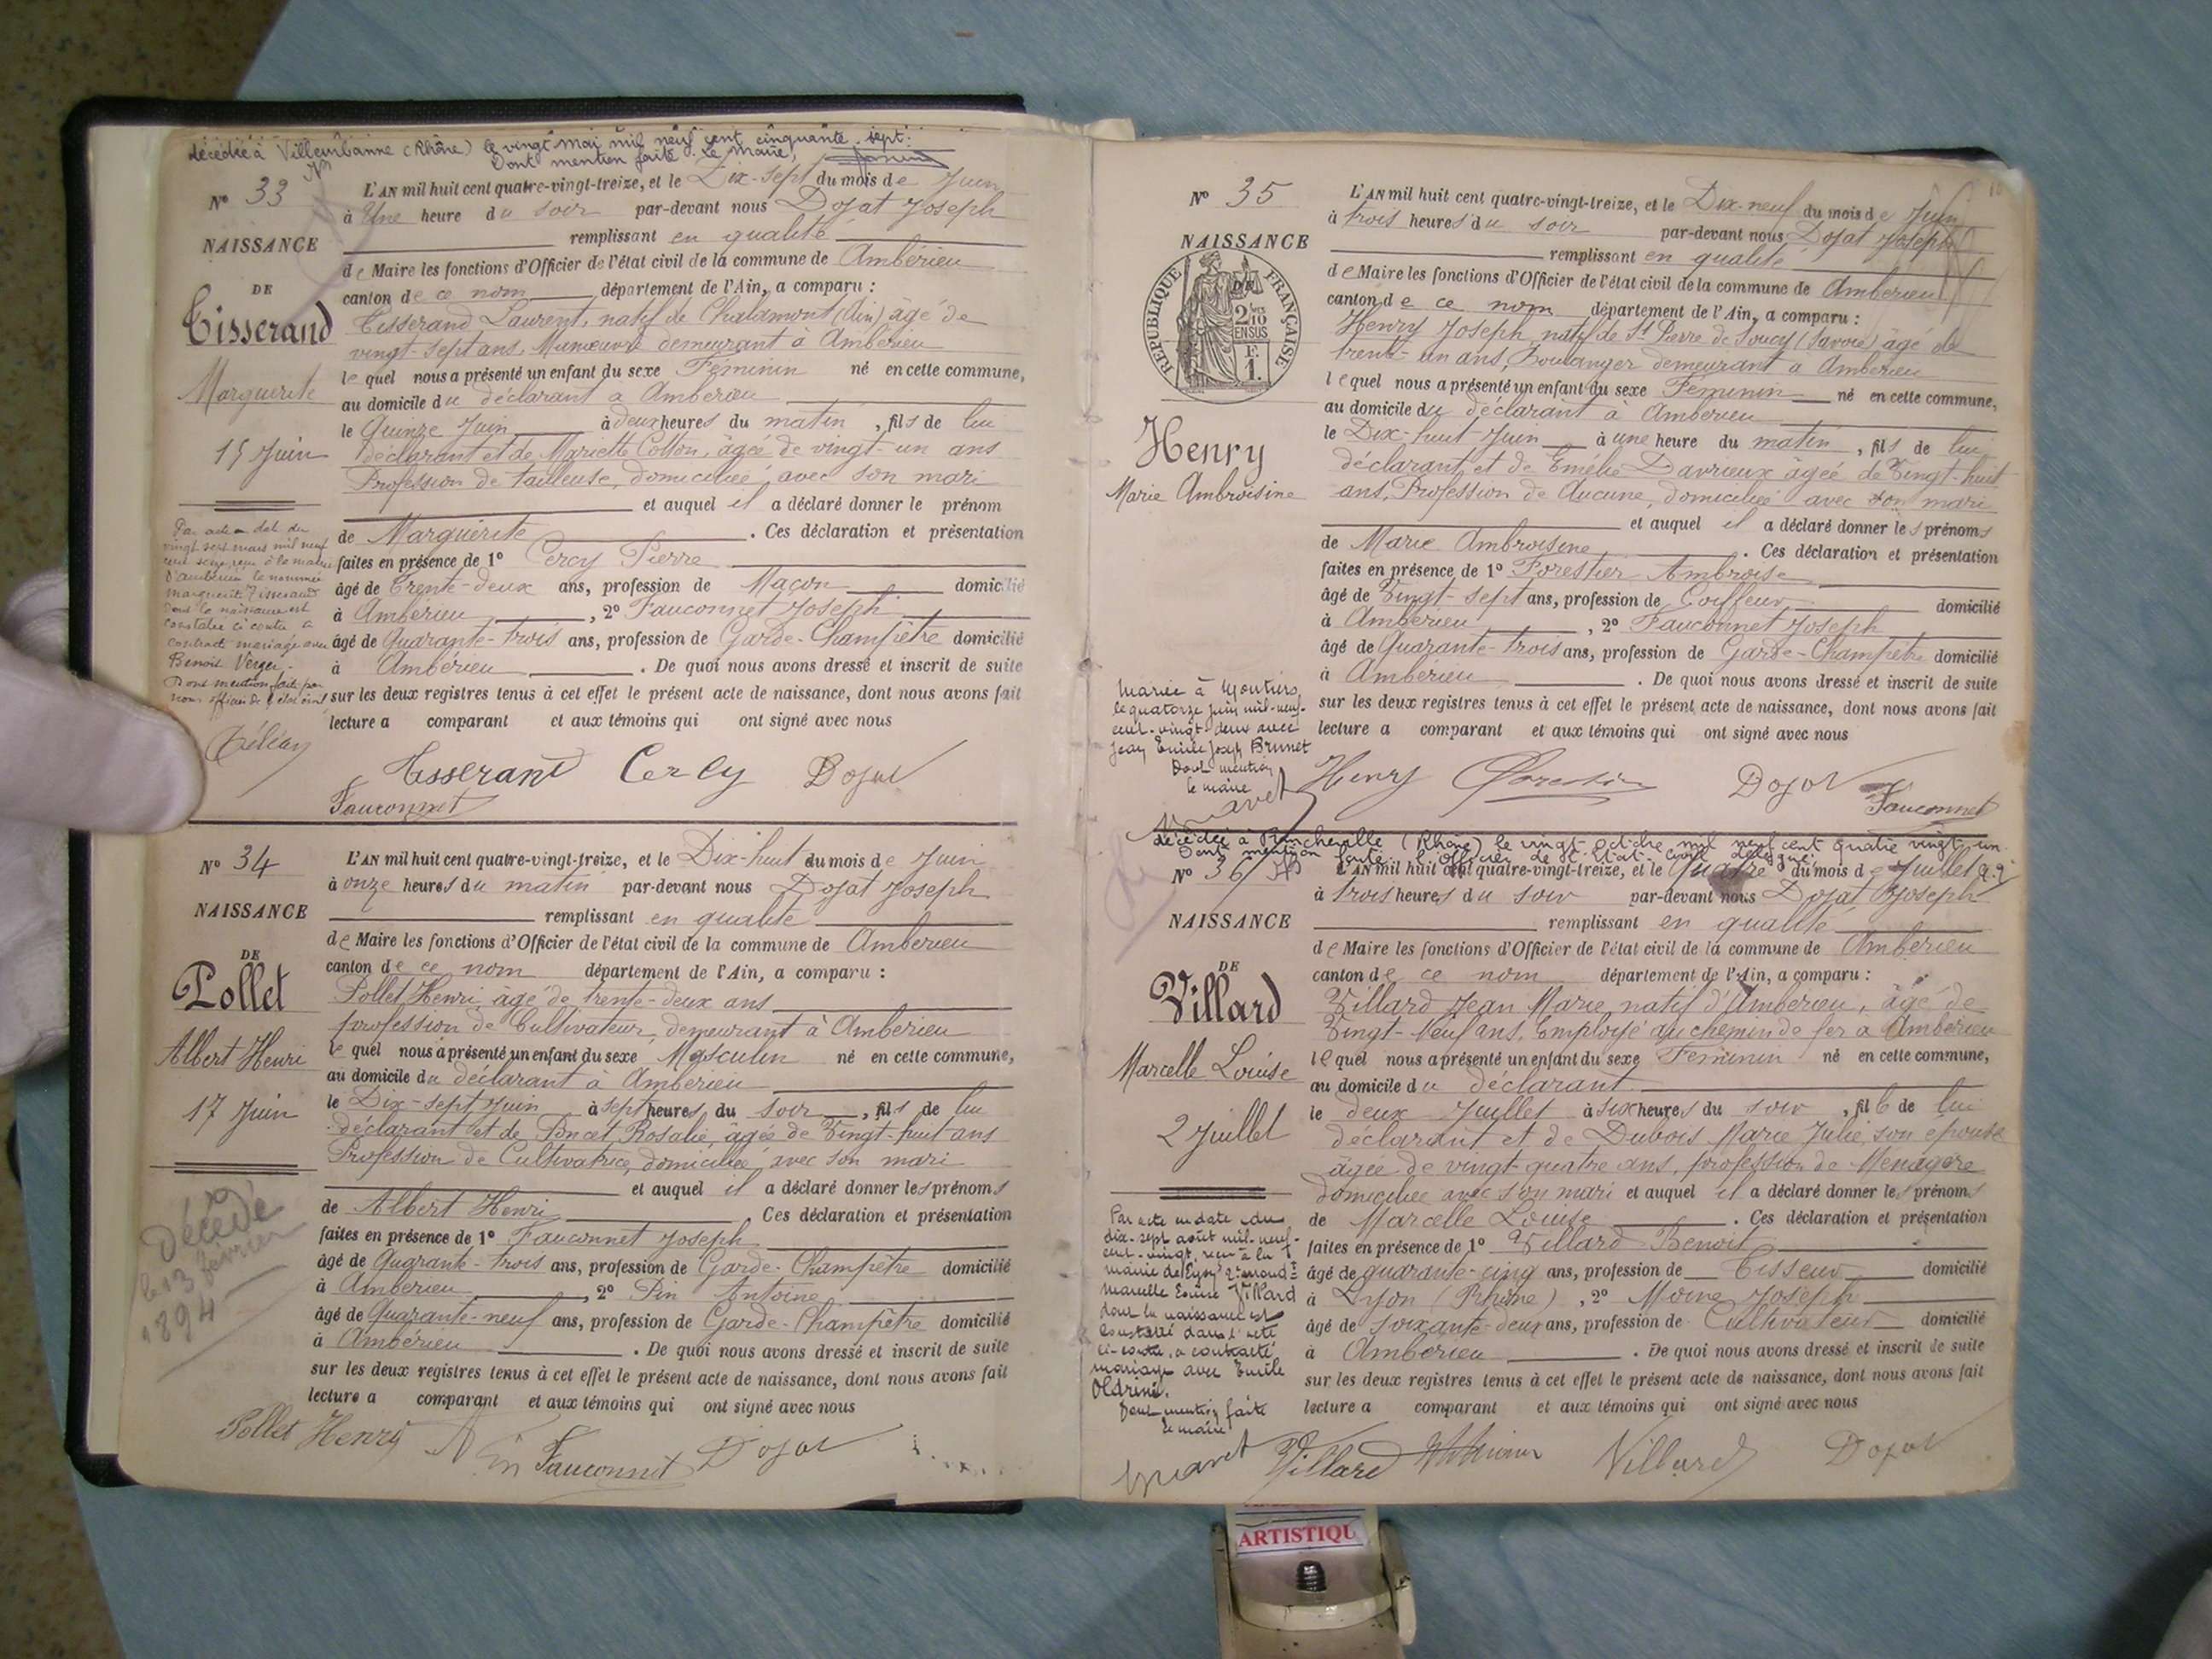 décédée à Villeurbanne (Rhône) le vingt mai mil neuf cent cinquante-sept.
Dont mention faite. Le Maire,
N° 33
NAISSANCE
DE
Tisserand
Marguerite
15 Juin
L'AN mil huit cent quatre-vingt-treize, et le Dix-sept du mois de Juin
à Une heure du soir par-devant nous Dojat Joseph
remplissant en qualité
de Maire les fonctions d'Officier de l'état civil de la commune de Ambérieu
canton de ce nom département de l'Ain, a comparu :
Tisserand Laurent, natif de Chalamont (Ain) âgé de
vingt-sept ans, Manœuvre demeurant à Ambérieu
lequel nous a présenté un enfant du sexe Féminin né en cette commune,
au domicile du déclarant à Ambérieu
le Quinze Juin à deux heures du matin, fils de lui
déclarant et de Mariette Cotton, âgée de vingt-un ans
Profession de tailleuse, domiciliée avec son mari
et auquel il a déclaré donner le prénom
de Marguerite. Ces déclaration et présentation
faites en présence de 1° Cercy Pierre
âgé de Trente-deux ans, profession de Maçon domicilié
à Ambérieu, 2° Fauconnet Joseph
âgé de Quarante-trois ans, profession de Garde-Champêtre domicilié
à Ambérieu. De quoi nous avons dressé et inscrit de suite
sur les deux registres tenus à cet effet le présent acte de naissance, dont nous avons fait
lecture a comparant et aux témoins qui ont signé avec nous
Par acte en date du
vingt sept mars mil neuf
cent seize, reçu à la mairie
d'Ambérieu la nommée
Marguerite Tisserand
dont la naissance est
constatée ci contre a
contracté mariage avec
Benoit Verger.
Dont mention faite par
nous officier de l'état civil
Tisserant Cercy Dojat
Fauconnet
N° 34
NAISSANCE
DE
Pollet
Albert Henri
17 Juin
décédé
le 13 février
1894
L'AN mil huit cent quatre-vingt-treize, et le Dix-huit du mois de Juin
à onze heures du matin par-devant nous Dojat Joseph
remplissant en qualité
de Maire les fonctions d'Officier de l'état civil de la commune de Ambérieu
canton de ce nom département de l'Ain, a comparu :
Pollet Henri âgé de trente-deux ans
profession de Cultivateur, demeurant à Ambérieu
lequel nous a présenté un enfant du sexe Masculin né en cette commune,
au domicile du déclarant à Ambérieu
le Dix-sept Juin à sept heures du soir, fils de lui
déclarant et de Poncet Rosalie, âgée de Vingt-huit ans
Profession de Cultivatrice, domiciliée avec son mari
et auquel il a déclaré donner les prénoms
de Albert Henri. Ces déclaration et présentation
faites en présence de 1° Fauconnet Joseph
âgé de Quarante-trois ans, profession de Garde-Champêtre domicilié
à Ambérieu, 2° Pin Antoine
âgé de Quarante-neuf ans, profession de Garde-Champêtre domicilié
à Ambérieu. De quoi nous avons dressé et inscrit de suite
sur les deux registres tenus à cet effet le présent acte de naissance, dont nous avons fait
lecture a comparant et aux témoins qui ont signé avec nous
Pollet Henry Pin Fauconnet Dojat
N° 35
NAISSANCE
DE
REPUBLIQUE FRANÇAISE
2/10
EN SUS
F.
1.
Henry
Marie Ambroisine
L'AN mil huit cent quatre-vingt-treize, et le Dix-neuf du mois de Juin
à trois heures du soir par-devant nous Dojat Joseph
remplissant en qualité
de Maire les fonctions d'Officier de l'état civil de la commune de Ambérieu
canton de ce nom département de l'Ain, a comparu :
Henry Joseph, natif de St Pierre de Soucy (Savoie) âgé de
trente-un ans, Boulanger demeurant à Ambérieu
lequel nous a présenté un enfant du sexe Féminin né en cette commune,
au domicile du déclarant à Ambérieu
le Dix-huit Juin à une heure du matin, fils de lui
déclarant, et de Emélie Davrieux âgée de Vingt-huit
ans, Profession de Aucune, domiciliée avec son mari
et auquel il a déclaré donner les prénoms
de Marie Ambroisine. Ces déclaration et présentation
faites en présence de 1° Forestier Ambroise
âgé de Vingt-sept ans, profession de Coiffeur domicilié
à Ambérieu, 2° Fauconnet Joseph
âgé de Quarante-trois ans, profession de Garde-Champêtre domicilié
à Ambérieu. De quoi nous avons dressé et inscrit de suite
sur les deux registres tenus à cet effet le présent acte de naissance, dont nous avons fait
lecture a comparant et aux témoins qui ont signé avec nous
Mariée à Moutiers
le quatorze juin mil-neuf-
cent-vingt-deux avec
Jean Emile Joseph Brunet
Dont mention
le maire
Henry Dojat
Fauconnet
décédée à (Rhône) le vingt octobre mil neuf cent quatre vingt un.
Dont mention faite. l'Officier de l'Etat-Civil délégué
N° 36
NAISSANCE
DE
Villard
Marcelle Louise
2 Juillet
L'AN mil huit cent quatre-vingt-treize, et le Quatre du mois de Juillet
à trois heures du soir par-devant nous Dojat Joseph
remplissant en qualité
de Maire les fonctions d'Officier de l'état civil de la commune de Ambérieu
canton de ce nom département de l'Ain, a comparu :
Villard Jean Marie, natif d'Ambérieu, âgé de
Vingt-neuf ans, Employé au chemin de fer à Ambérieu
lequel nous a présenté un enfant du sexe Féminin né en cette commune,
au domicile du déclarant
le deux Juillet à six heures du soir, fille de lui
déclarant et de Dubois Marie Julie son épouse
âgée de vingt-quatre ans, profession de Ménagère
domiciliée avec son mari et auquel il a déclaré donner les prénoms
de Marcelle Louise. Ces déclaration et présentation
faites en présence de 1° Villard Benoit
âgé de quarante-cinq ans, profession de Tisseur domicilié
à Lyon (Rhône), 2° Moine Joseph
âgé de soixante-deux ans, profession de Cultivateur domicilié
à Ambérieu. De quoi nous avons dressé et inscrit de suite
sur les deux registres tenus à cet effet le présent acte de naissance, dont nous avons fait
lecture a comparant et aux témoins qui ont signé avec nous
Par acte en date du
dix-sept août mil-neuf-
cent-vingt, reçu à la
mairie de Lyon 2e arrondt
Marcelle Louise Villard
dont la naissance est
constatée dans l'acte
ci-contre, a contracté
mariage avec Emile
Oldrini.
Dont mention faite
le maire
Villard Villard Dojat
ARTISTIQU